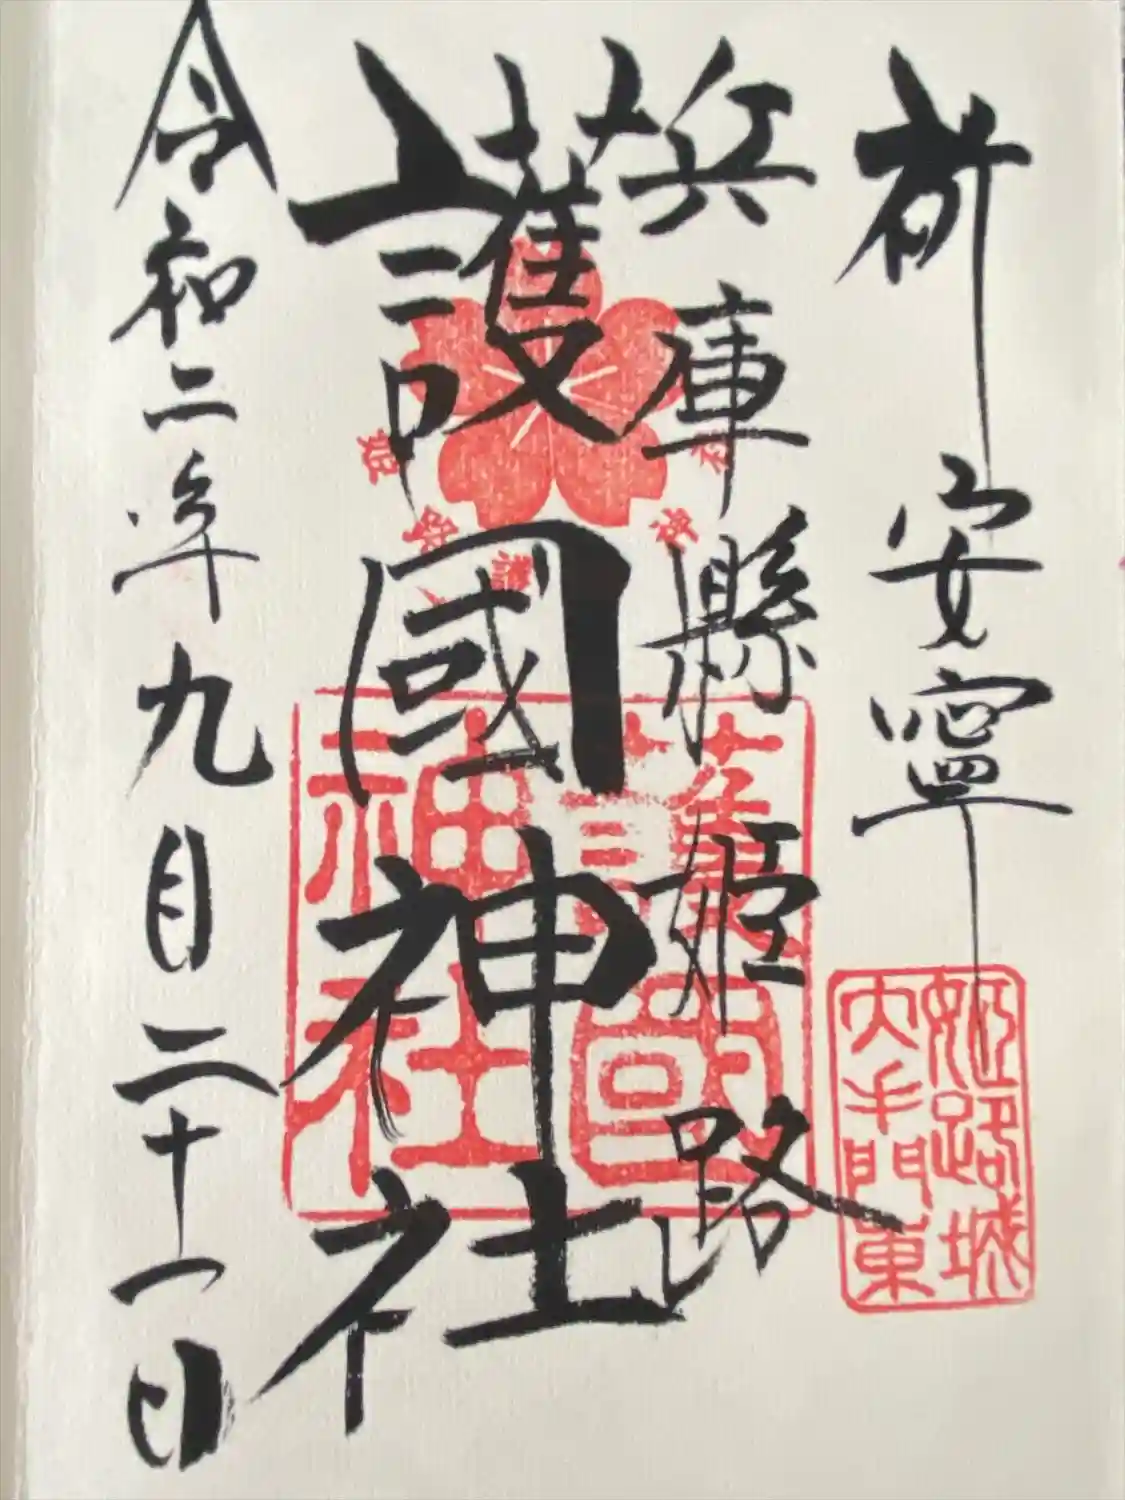 祈 安寧
兵庫縣姫路
護國神社
令和二年九月二十一日
護國
神社
姫路城
大手門東